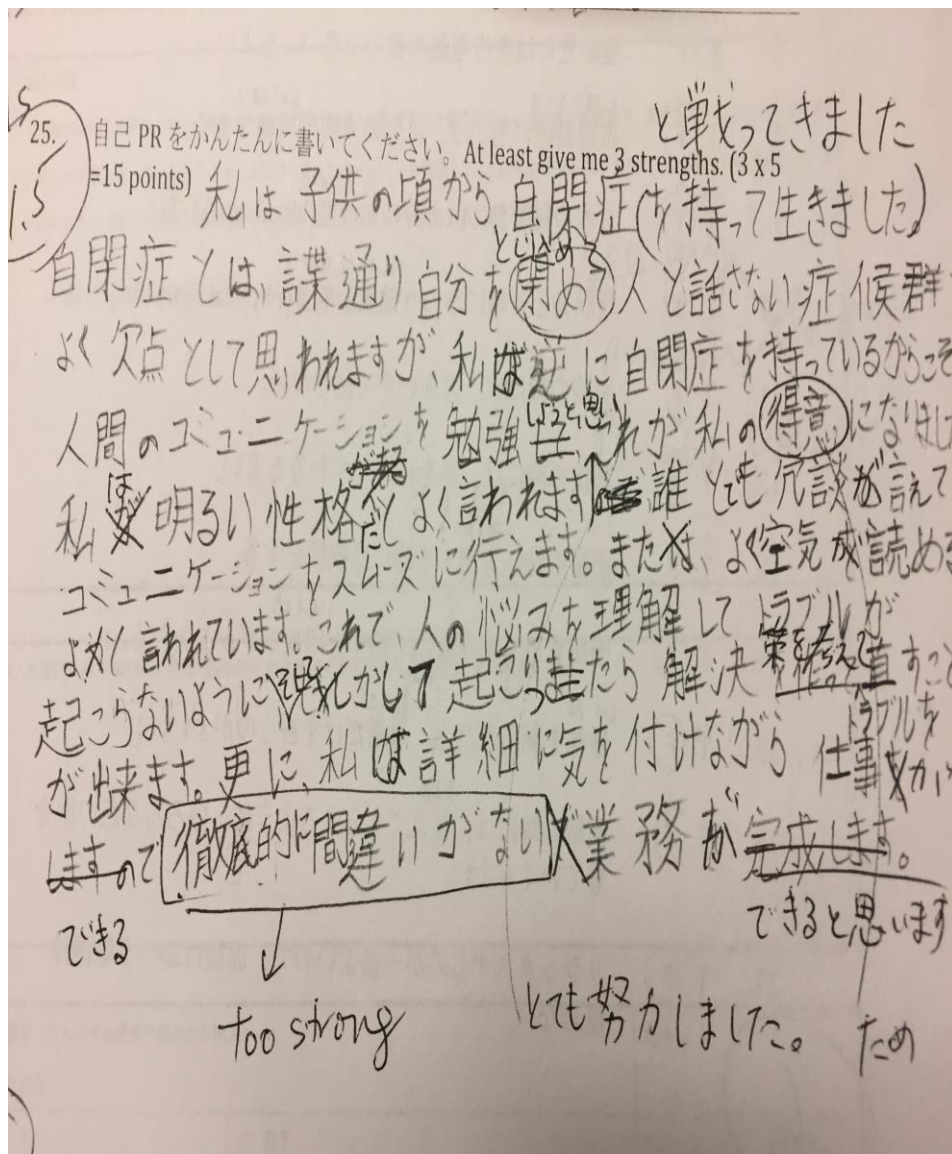 と戦ってきました
25. 自己 PR をかんたんに書いてください。At least give me 3 strengths. (3 x 5
=15 points) 私は子供の頃から自閉症(を持って生きました。)
1.5
とじこめ
自閉症とは、諜通り自分を閉めて人と話さない症候群
よく欠点として思われますが、私は逆に自閉症を持っているからこそ
人間のコミュニケーションを勉強しようと思い れが私の得意になりまし
私は明るい性格だとよく言われます 誰とでも冗談が言えて
コミュニケーションをスムーズに行えます。または、よく空気が読める
よめと言われています。これで、人の悩みを理解してトラブルが
起こらないように しかして起こったら解決策を考えて直すこと
が出来ます。更に、私は詳細に気を付けながら仕事
トラブルを
しますので徹底的に間違いがない業務が完成します。
できる
できると思います
too strong
とても努力しました。
ため